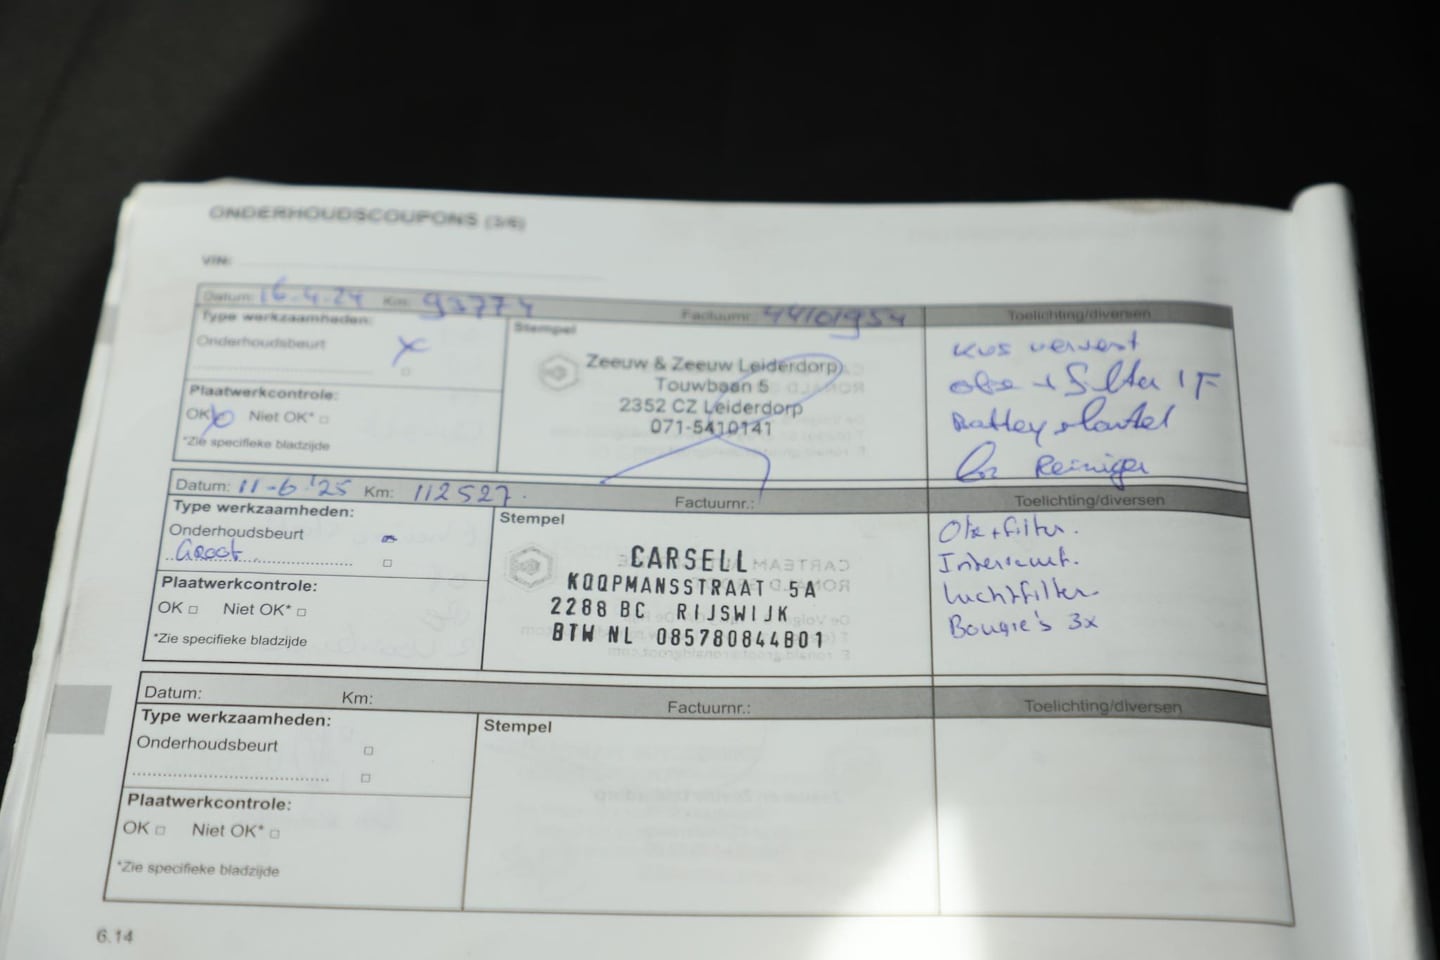 ONDERHOUDSCOUPONS (3/6)
VIN:
Datum: 16-4-24 Km: 93774 Factuurnr.: 44101954 Toelichting/diversen
Type werkzaamheden:
Onderhoudsbeurt
Plaatwerkcontrole:
OK Niet OK*
*Zie specifieke bladzijde
Stempel
Zeeuw & Zeeuw Leiderdorp
Touwbaan 5
2352 CZ Leiderdorp
071-5410141
ververst
olie + filter
Reiniger
Datum: 11-6-'25 Km: 112527. Factuurnr.: Toelichting/diversen
Type werkzaamheden:
Onderhoudsbeurt
Groot
Plaatwerkcontrole:
OK Niet OK*
*Zie specifieke bladzijde
Stempel
CARSELL
KOOPMANSSTRAAT 5A
2288 BC RIJSWIJK
BTW NL 085780844B01
Olie+filter.
Luchtfilter
Bougie's 3x
Datum: Km: Factuurnr.: Toelichting/diversen
Type werkzaamheden:
Onderhoudsbeurt
Plaatwerkcontrole:
OK Niet OK*
*Zie specifieke bladzijde
Stempel
6.14